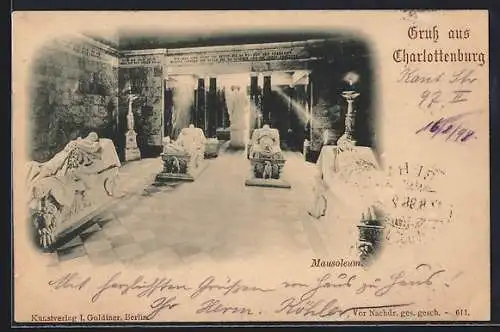 Gruß aus
Charlottenburg
Kant Str
97. II
16/8/98.
Mausoleum.
Mit herzlichsten Grüßen von Haus zu Haus!
Ihr Herm. Köhler
Kunstverlag J. Goldiner, Berlin.
Vor Nachdr. ges. gesch. – 611.